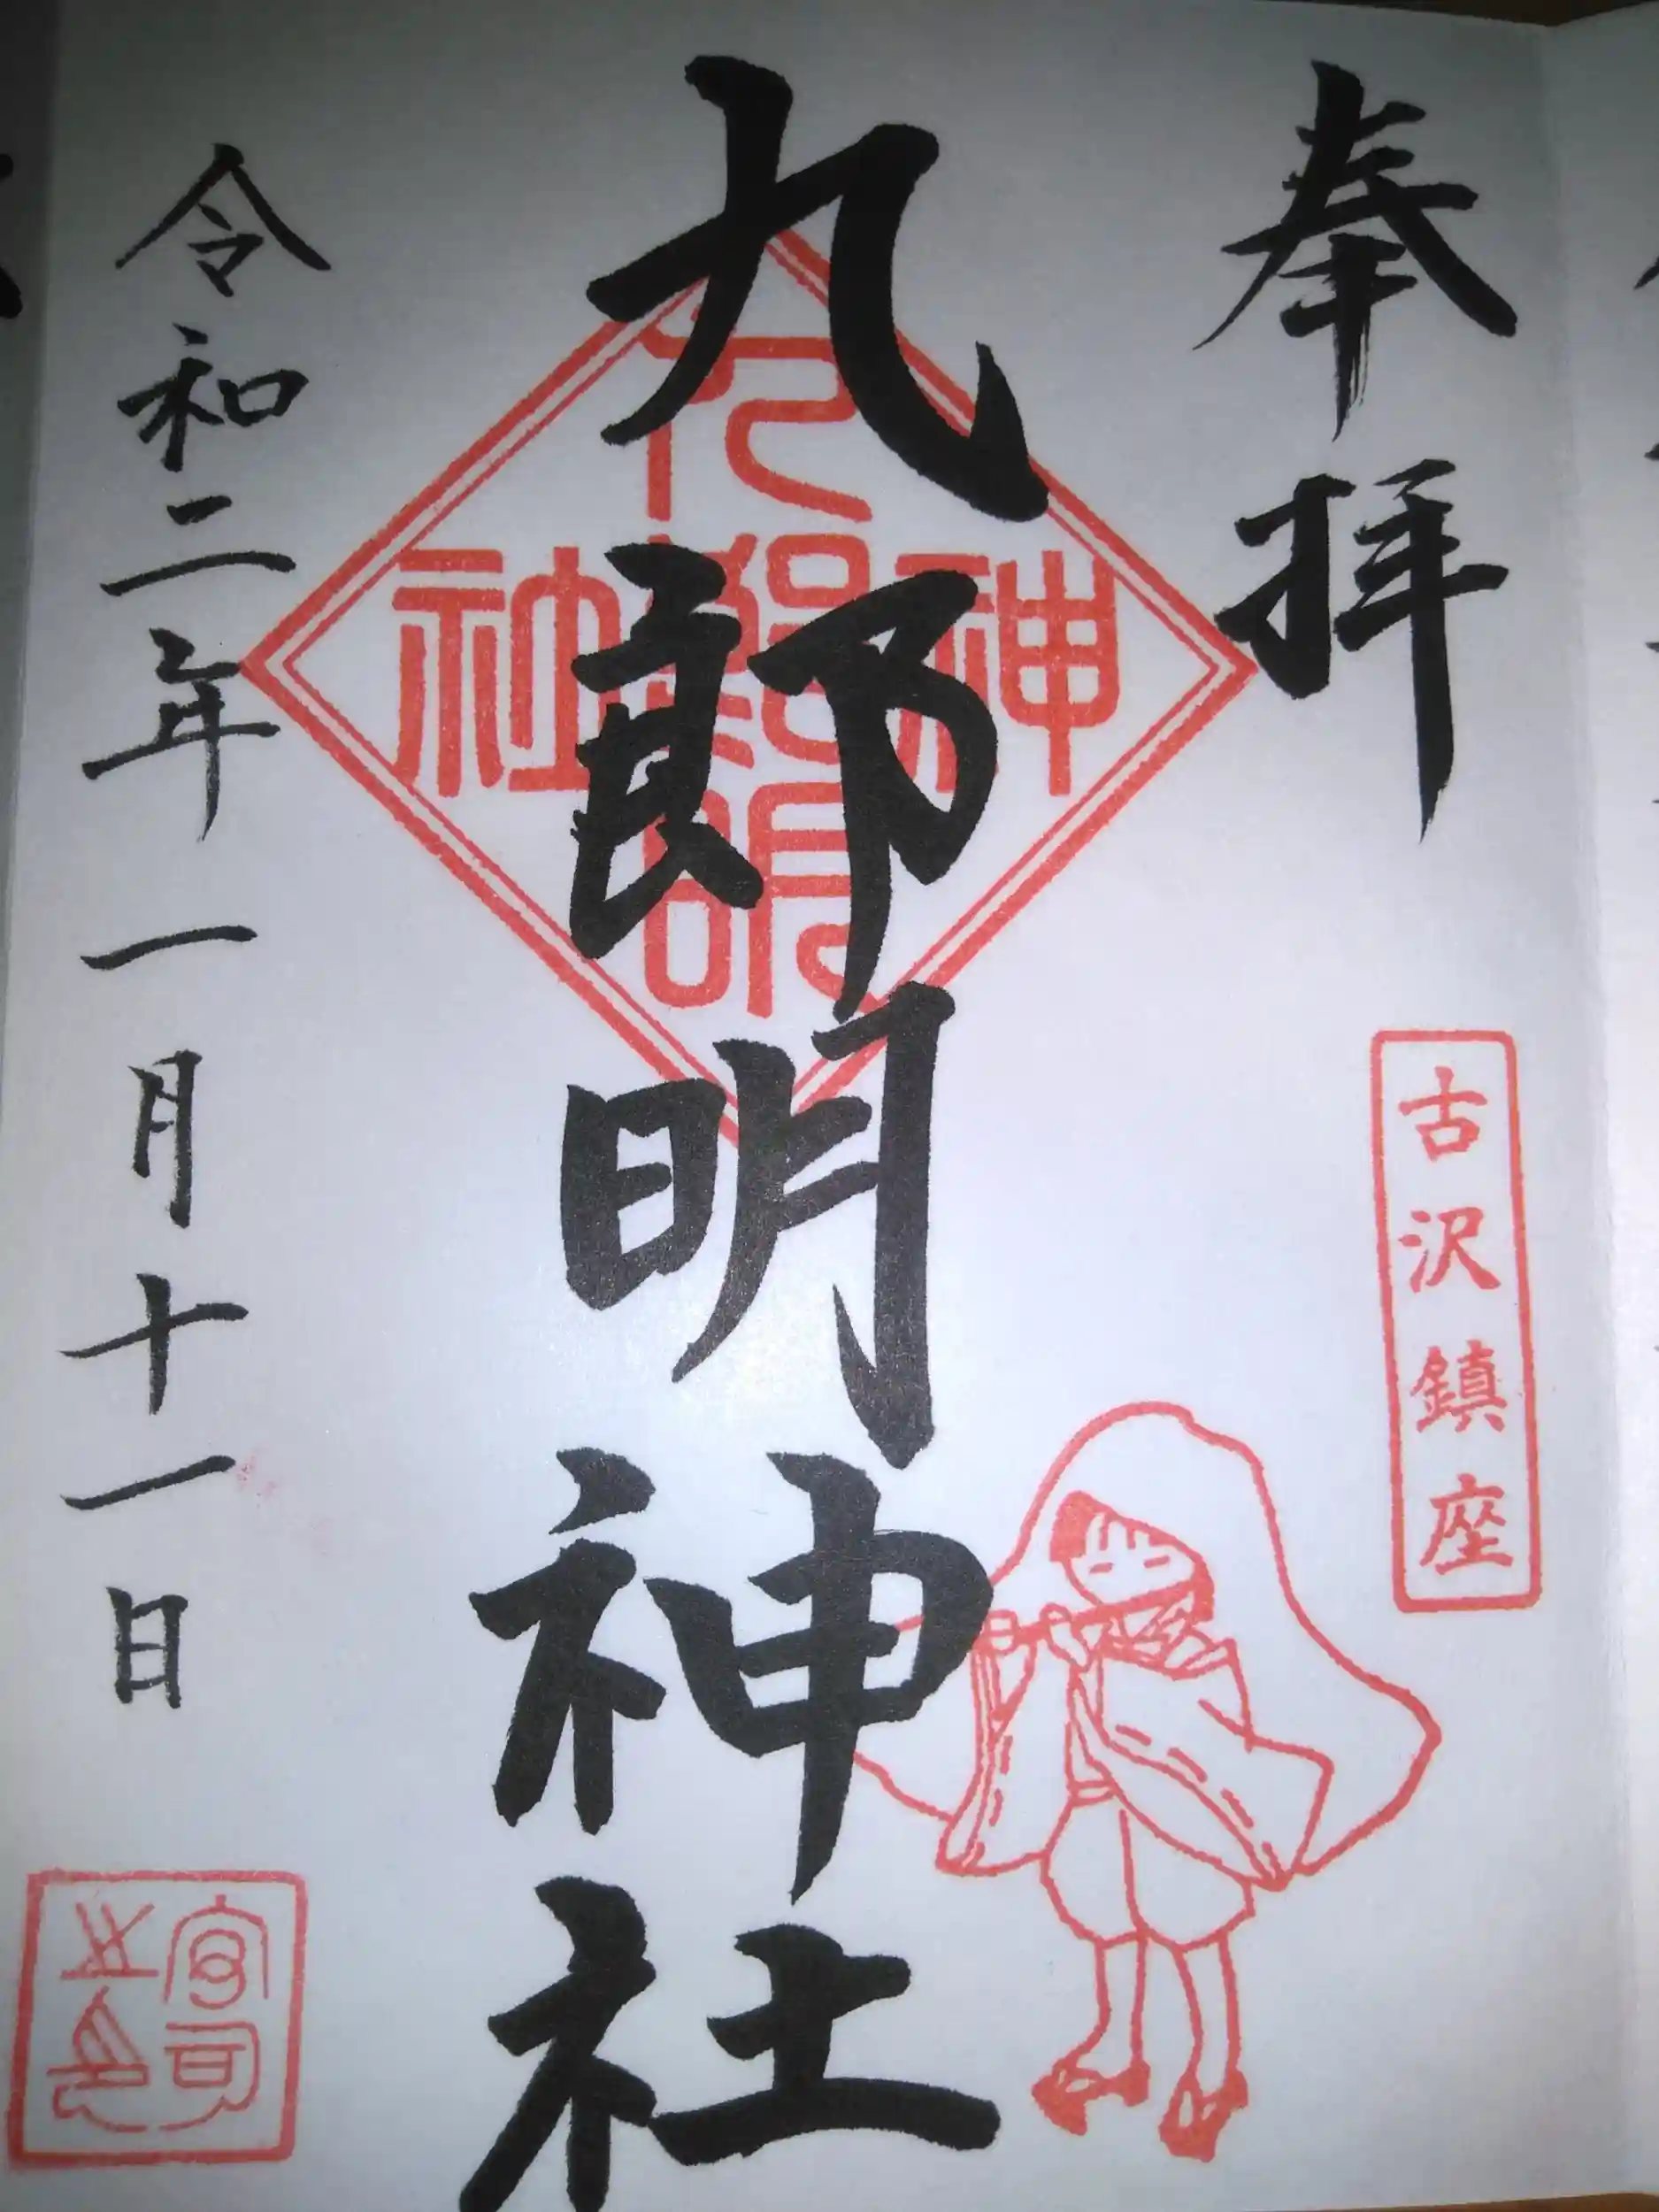 奉拝
古沢鎮座
九郎明神社
九郎明神社
令和二年一月十一日
宮司之印